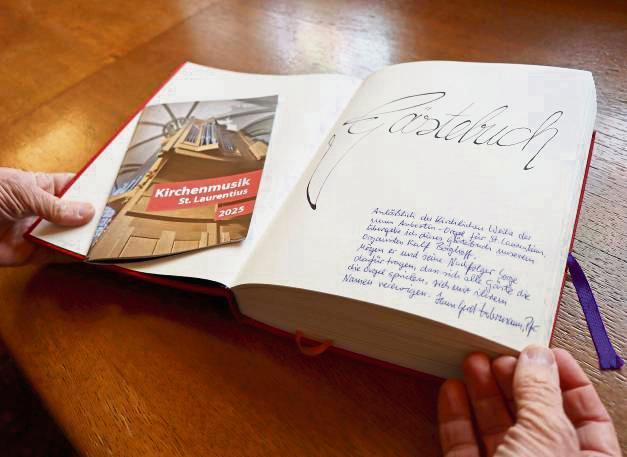 Kirchenmusik
St. Laurentius
2025
Gästebuch
Anläßlich der kirchlichen Weihe der
neuen Orgel für St. Laurentius,
übergebe ich dieses Gästebuch unserem
Organisten Ralf
Mögen er und seine Nachfolger Sorge
dafür tragen, dass sich alle Gäste die
die Orgel spielen, sich mit ihrem
Namen verewigen.